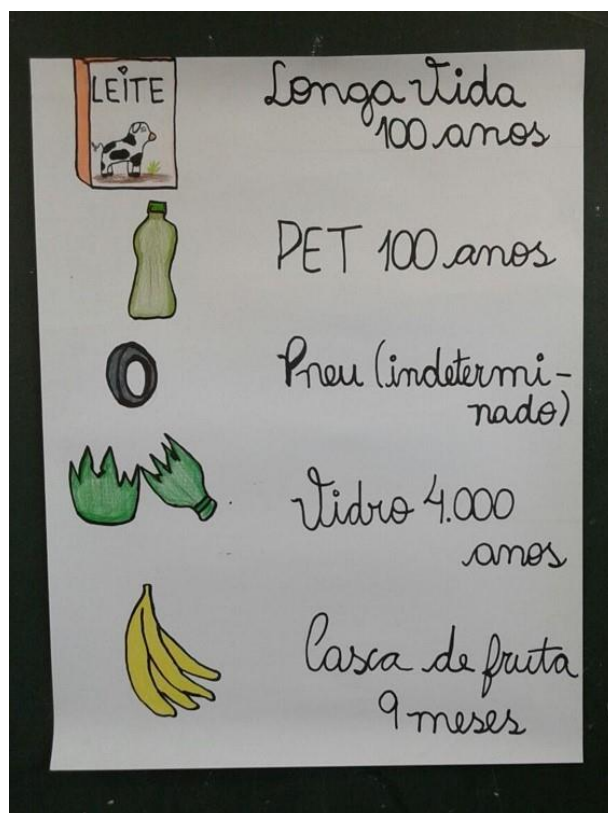 LEITE
Longa Vida
100 anos
PET 100 anos
Pneu (indetermi-
nado)
Vidro 4.000
anos
Casca de fruta
9 meses